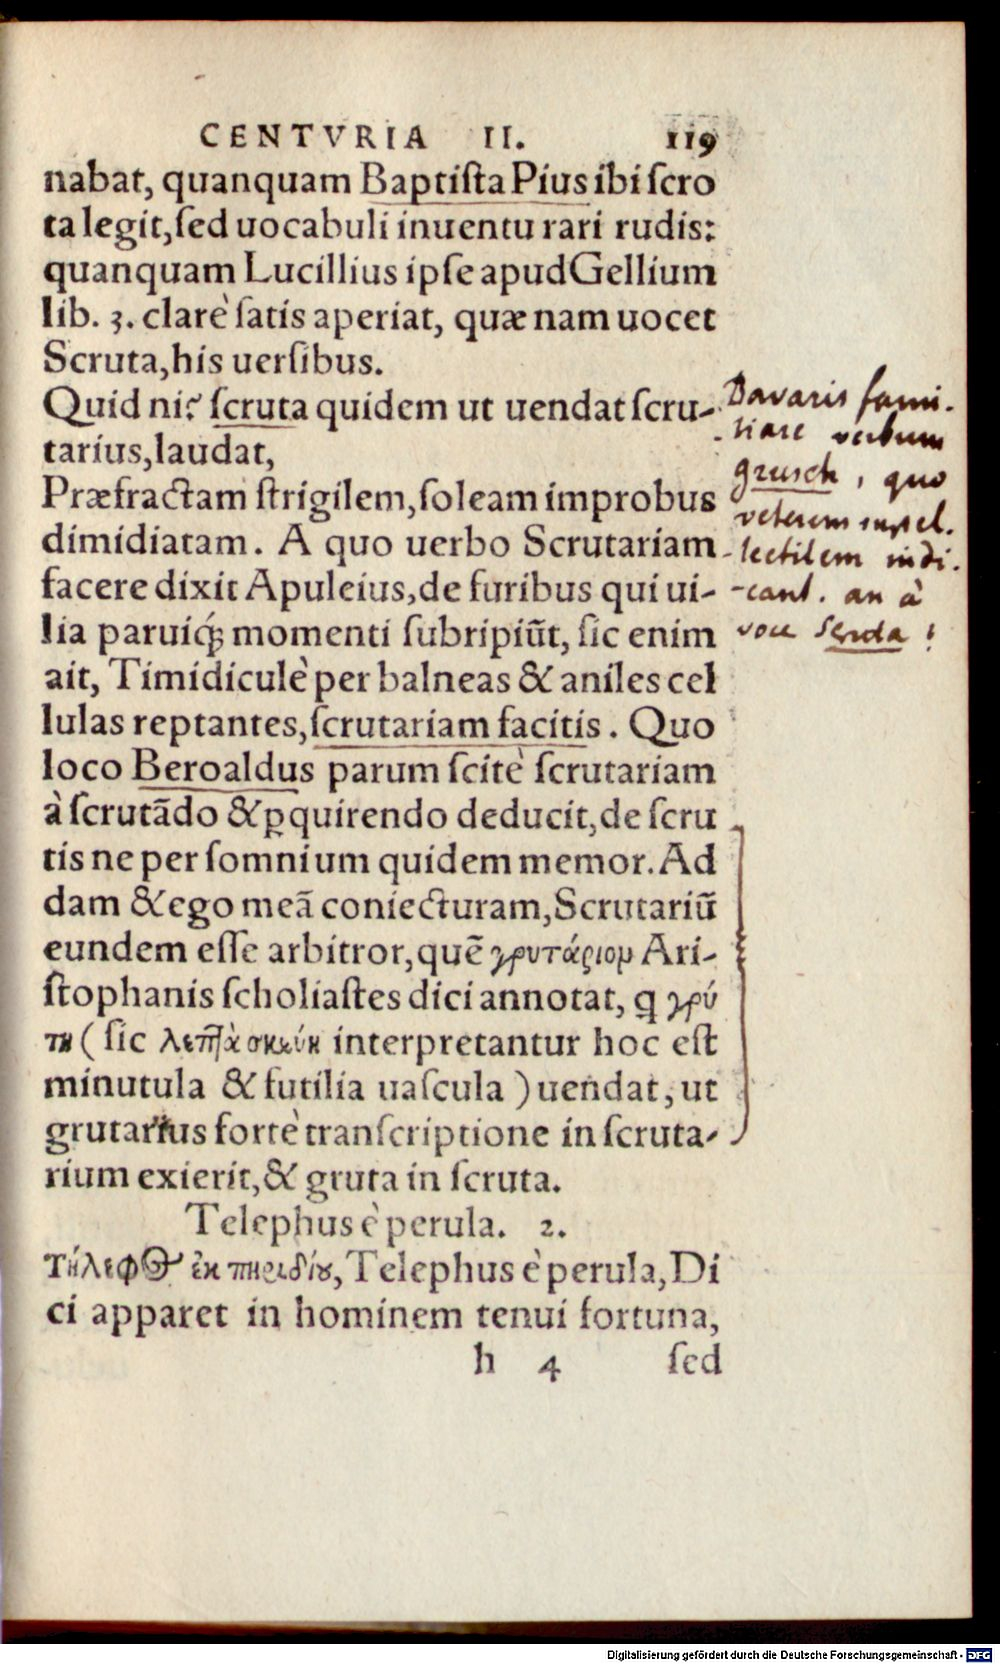 CENTVRIA II. 119
nabat, quanquam Baptista Pius ibi scro
ta legit, sed uocabuli inuentu rari rudis:
quanquam Lucillius ipse apud Gellium
lib. 3. clarè satis aperiat, quæ nam uocet
Scruta, his uersibus.
Quid ni? scruta quidem ut uendat scru-
tarius, laudat,
Præfractam strigilem, soleam improbus
dimidiatam. A quo uerbo Scrutariam
facere dixit Apuleius, de furibus qui ui-
lia paruiq́; momenti subripiũt, sic enim
ait, Timidiculè per balneas & aniles cel
lulas reptantes, scrutariam facitis. Quo
loco Beroaldus parum scitè scrutariam
à scrutãdo & ꝑquirendo deducit, de scru
tis ne per somnium quidem memor. Ad
dam & ego meã coniecturam, Scrutariũ
eundem esse arbitror, quẽ γρυτάριον Ari-
stophanis scholiastes dici annotat, ꝙ γρύ
τη (sic λεπτὰ σκεύη interpretantur hoc est
minutula & futilia uascula) uendat, ut
grutarius fortè transcriptione in scruta-
rium exierit, & gruta in scruta.
Telephus è perula. 2.
Τήλεφος ἐκ πηριδίου, Telephus è perula, Di
ci apparet in hominem tenui fortuna,
h 4 sed
Bavaris fami-
liare verbum
grusch, quo
veterem supel-
lectilem indi-
-cant. an à
voce
Digitalisierung gefördert durch die Deutsche Forschungsgemeinschaft - DFG